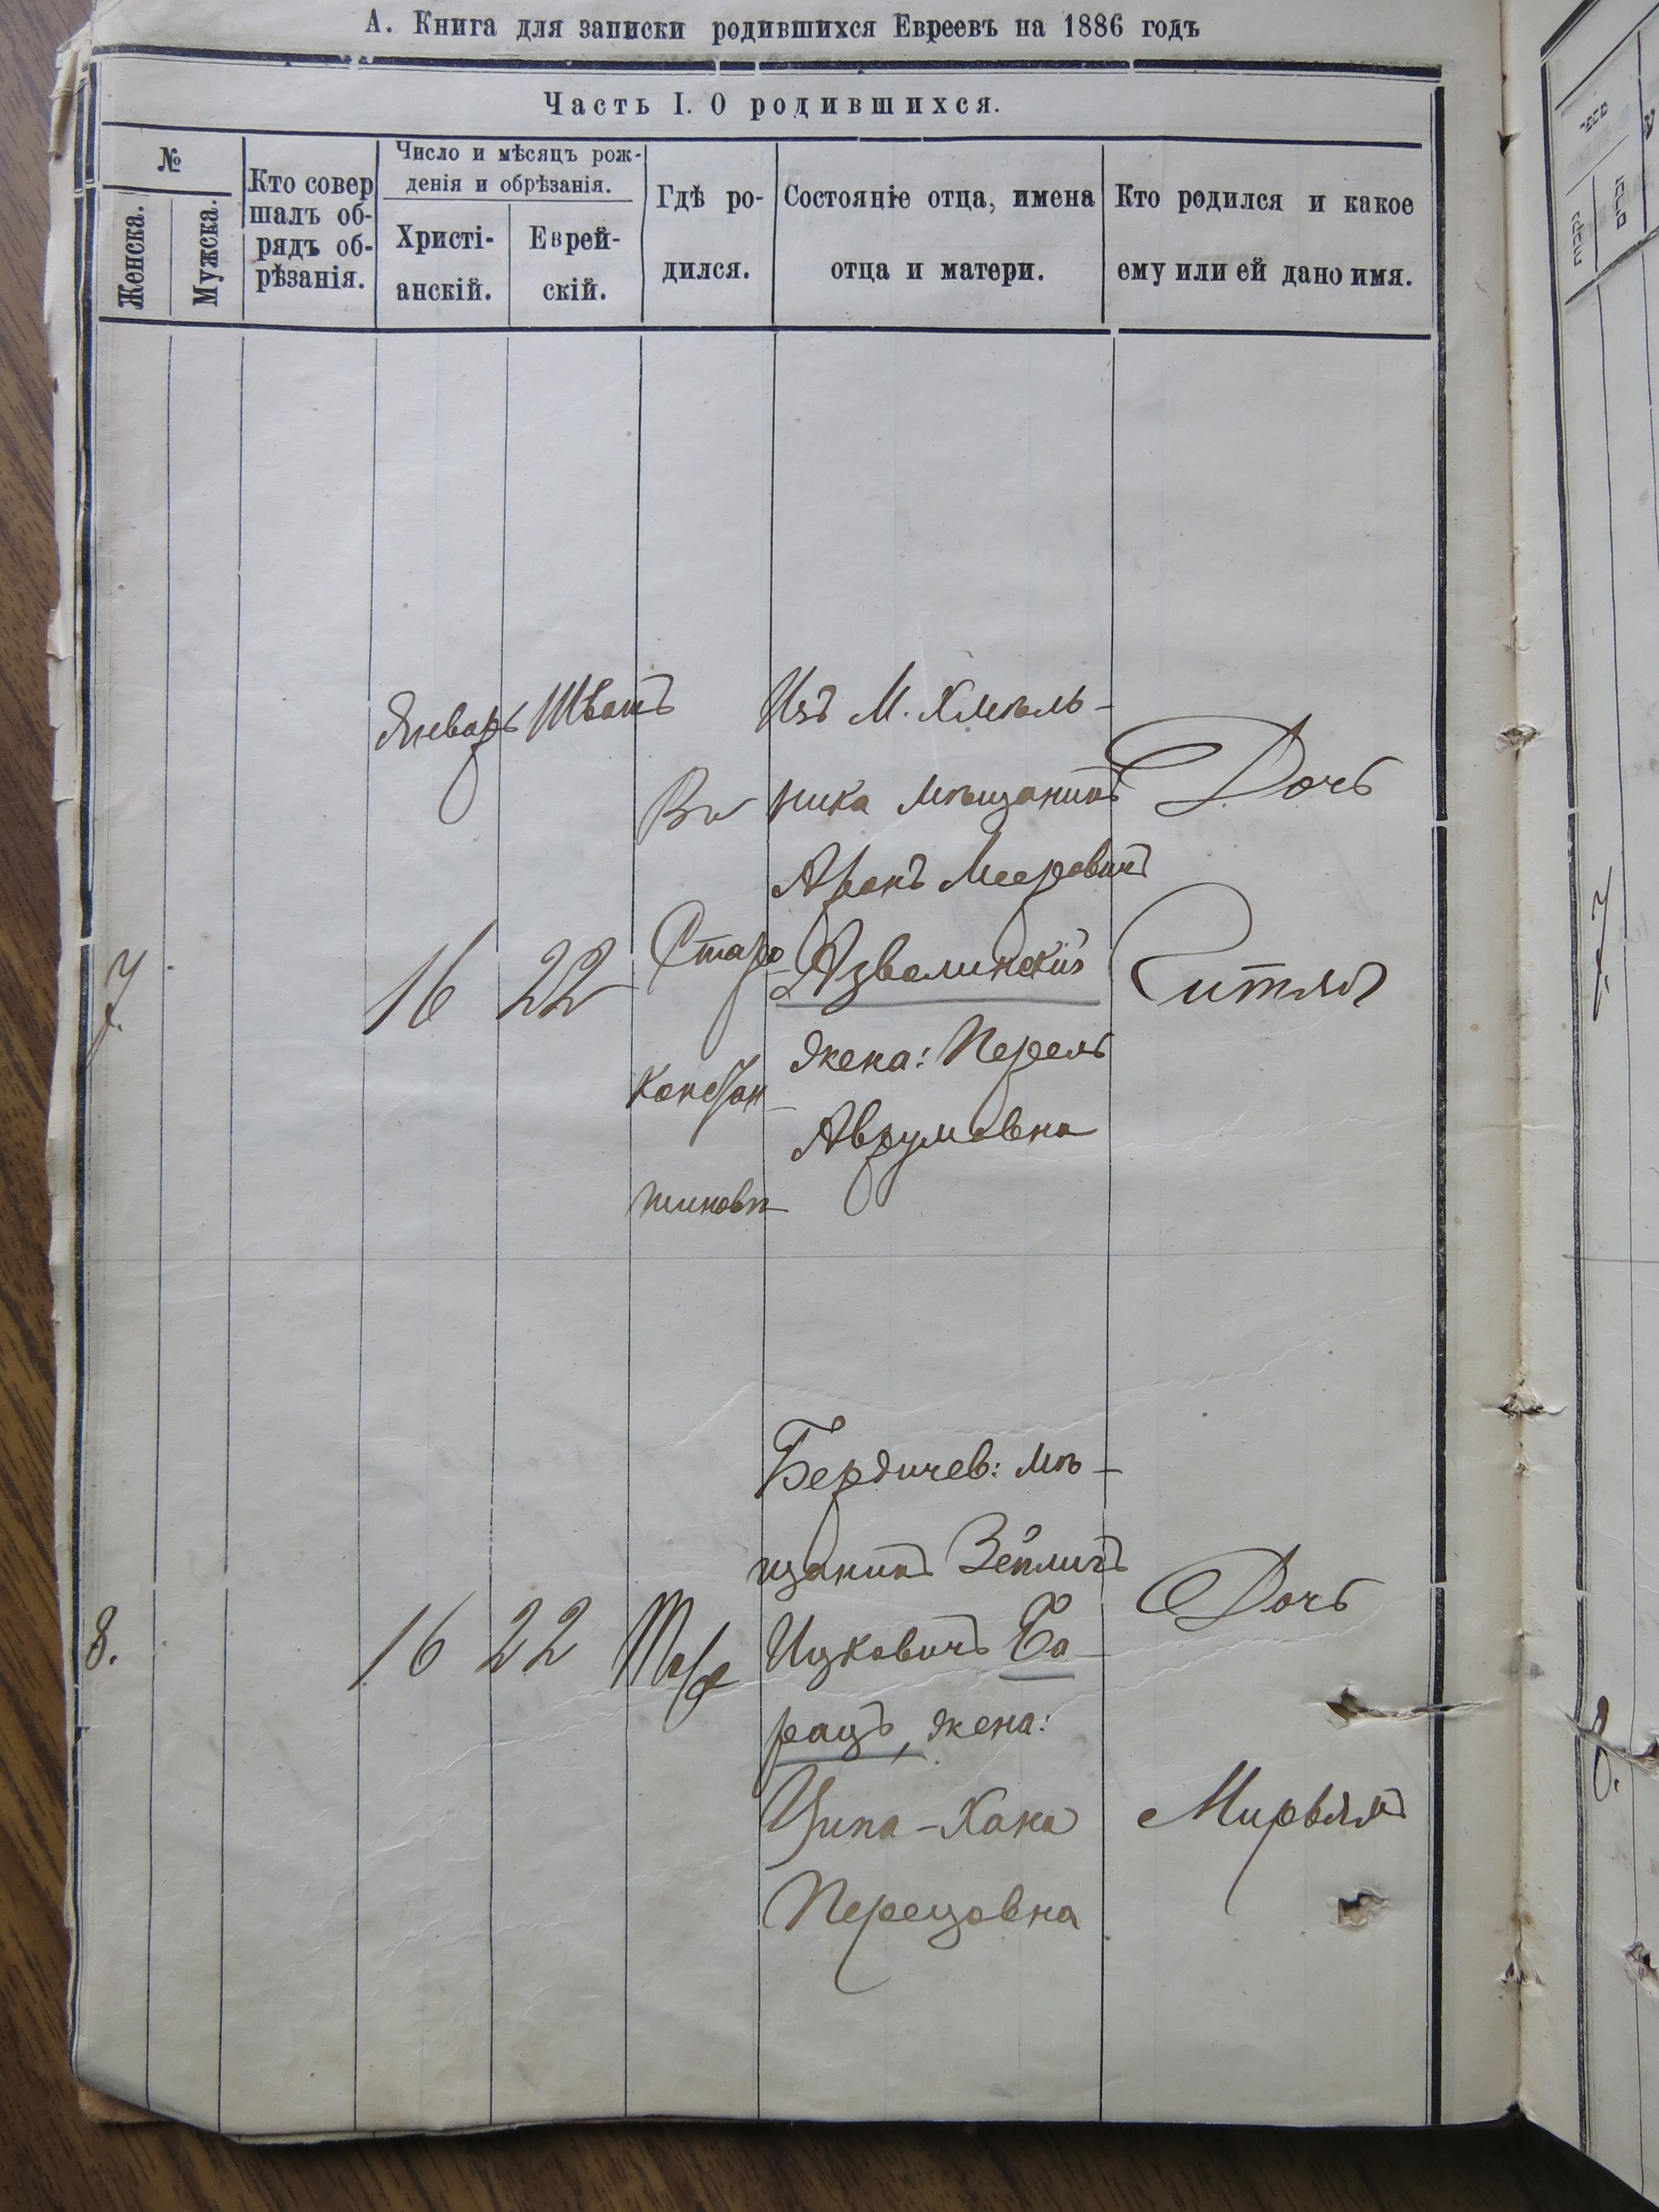 А. Книга для записки родившихся Евреевъ на 1886 годъ
Часть I. О родившихся.
№
Женска.
Мужска.
Кто совер
шалъ об-
рядъ об-
рѣзанія.
Число и мѣсяцъ рож-
денія и обрѣзанія.
Христі-
анскій.
Еврей-
скій.
Гдѣ ро-
дился.
Состояніе отца, имена
отца и матери.
Кто родился и какое
ему или ей дано имя.
7.
Январь
16
Шватъ
22
Въ
Старо
Констан-
тиновѣ
Изъ М. Хмѣль-
ника мѣщанинъ
Аронъ Мееровичъ
Азвалинскій
жена: Перель
Аврумовна
Дочь
Ситля
8.
16
22
Тоже
Бердичев: мѣ-
щанинъ Зейлигъ
Ицковичъ Ба-
рацъ, жена:
Ципа-Хана
Перецовна
Дочь
Мирьям